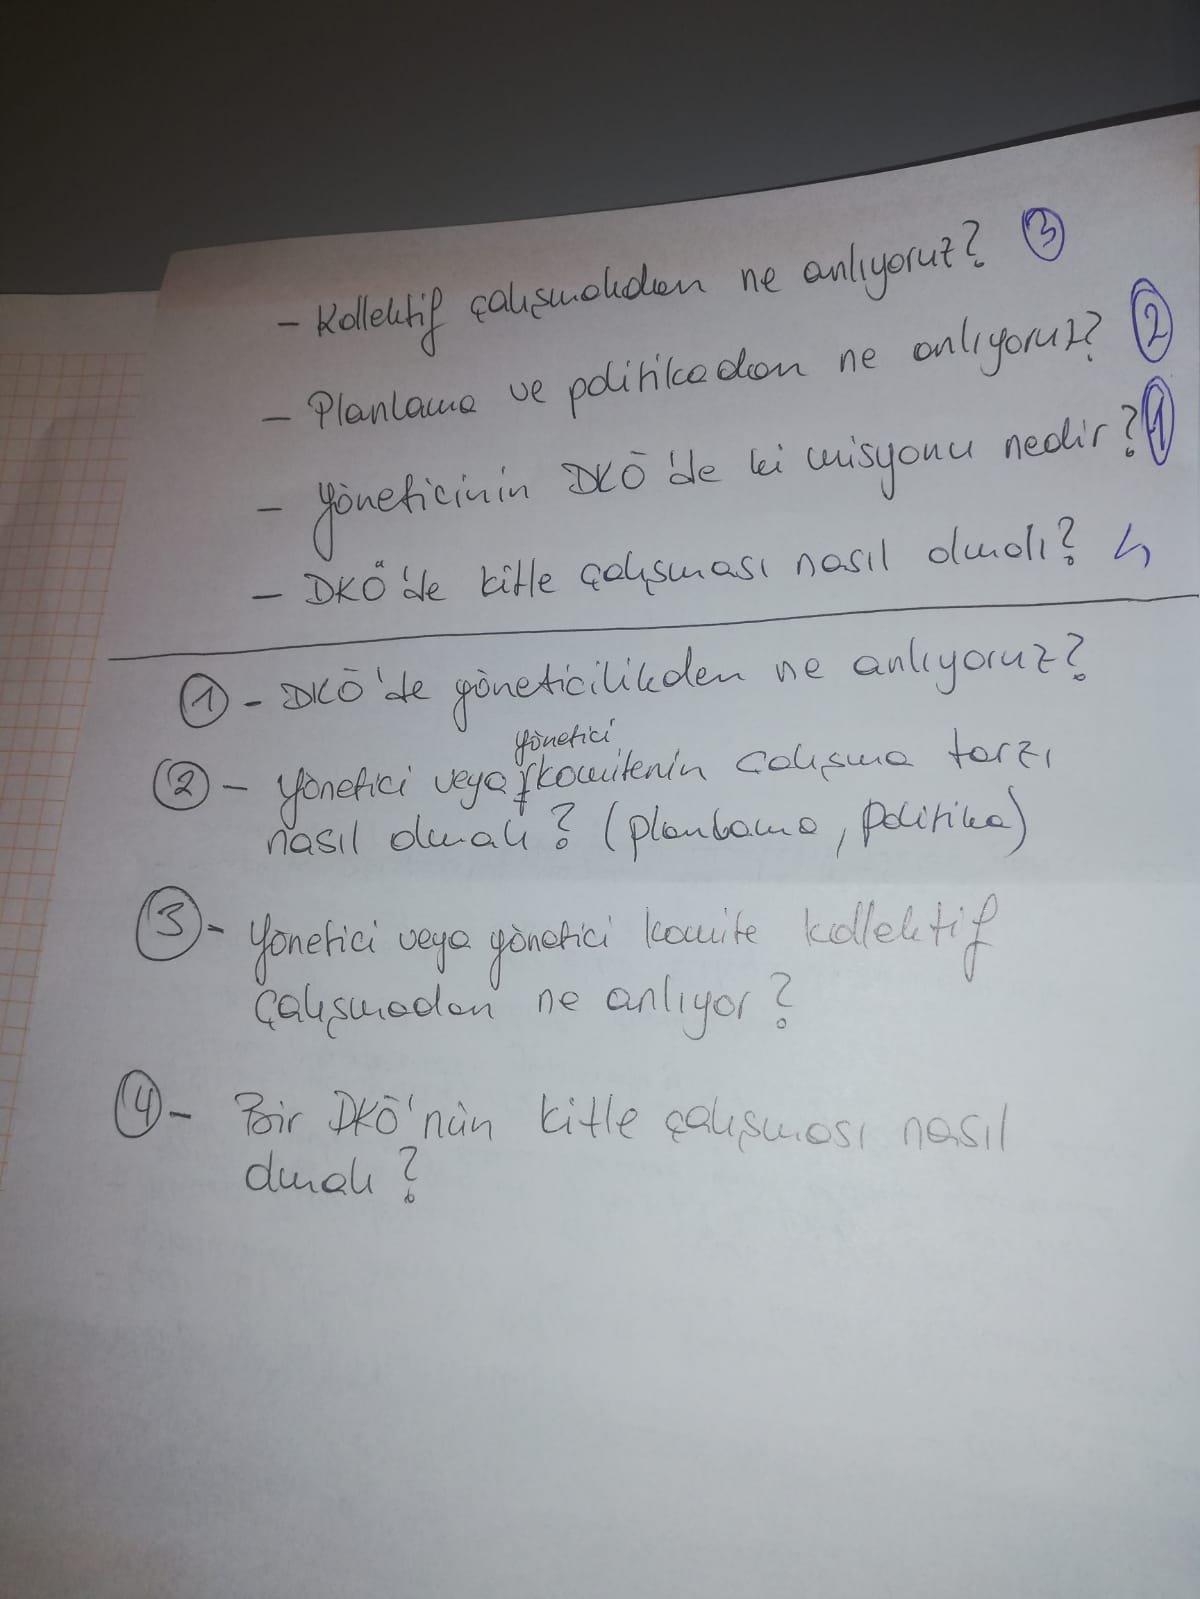 - Kollektif çalışmakdan ne anlıyoruz? 3
- Planlama ve politikadan ne anlıyoruz? 2
- Yöneticinin DKÖ'de ki misyonu nedir? 1
- DKÖ'de kitle çalışması nasıl olmalı? 4
1 - DKÖ'de yöneticilikden ne anlıyoruz?
yönetici
2 - Yönetici veya komitenin çalışma tarzı
nasıl olmalı? (planlama, politika)
3 - Yönetici veya yönetici komite kollektif
çalışmadan ne anlıyor?
4 - Bir DKÖ'nün kitle çalışması nasıl
olmalı?